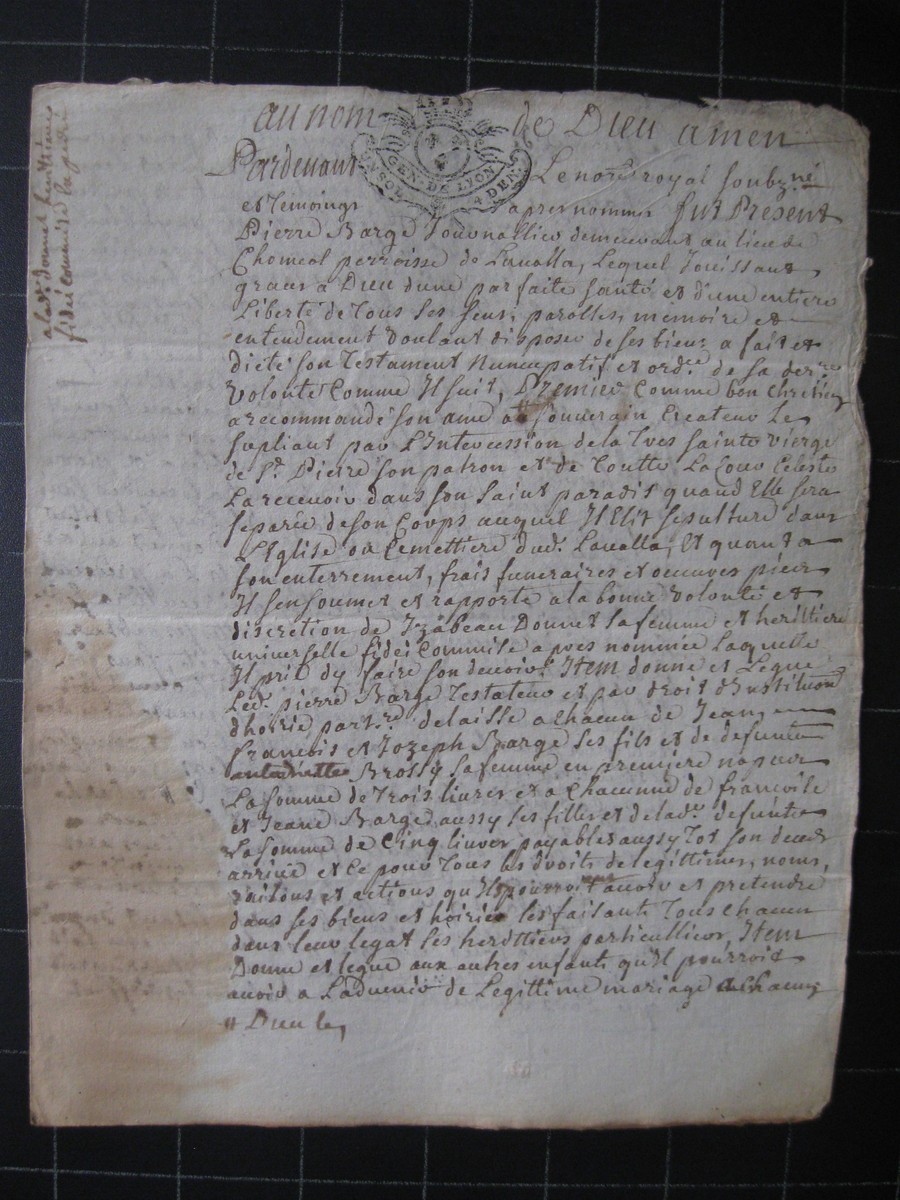 au nom de Dieu amen
GEN. DE LYON
4 DEN.
Pardevant Le nore royal soubzné
et temoings apres nommes fut Present
Pierre Barge Journallier demeurant au lieu de
Chomeol perroisse de Lavalla, Lequel Jouissant
graces a Dieu dune parfaite santé et d'une entiere
Liberté de Tous ses sens, parolles, memoire et
entendement voulant disposer de ses biens a fait et
dicté son Testament Nuncupatif et ordce de sa derre
volonté Comme Il suit, Premier Comme bon Chretien
a recommandé son ame au souverain Createur Le
supliant par L'Intercession de la Tres sainte vierge
de St. Pierre son patron et de Toutte La Cour Celeste
La recevoir dans son saint paradis quand Elle sera
separée de son Corps auquel Il Elit sepulture dans
L'Eglise ou Cemettiere dud. Lavalla, Et quant a
son enterrement, frais funeraires et oeuvres pies
Il sen soumet et rapporte a la bonne volonté et
discretion de Izabeau Donnet sa femme et herittiere
universelle fidei Commise apres nommée Laquelle
Il prie dy faire son devoir, Item donne et Legue
Led. pierre Barge Testateur et par droit d'Institution
dhoirie partre delaisse a Chacun de Jean,
francois et Jozeph Barge ses fils et de defunte
antoinette Brossy sa femme en premiere nopces
La somme de Trois livres et a Chacunne de francoise
et Jeane Barge aussy ses filles et de lade defunte
La somme de Cinq livres payables aussy tot son deces
arrivé et Ce pour Tous les droits de legittimes, noms,
raisons et actions qu'Ils pourroient avoir et pretendre
dans ses biens et hoirie les faisant Tous Chacun
dans leur legat ses herittiers particulliers, Item
Donne et legue aux autres enfants qu'il pourroit
avoir a Ladvenir de Legittime mariage a Chacun
fidei Commise